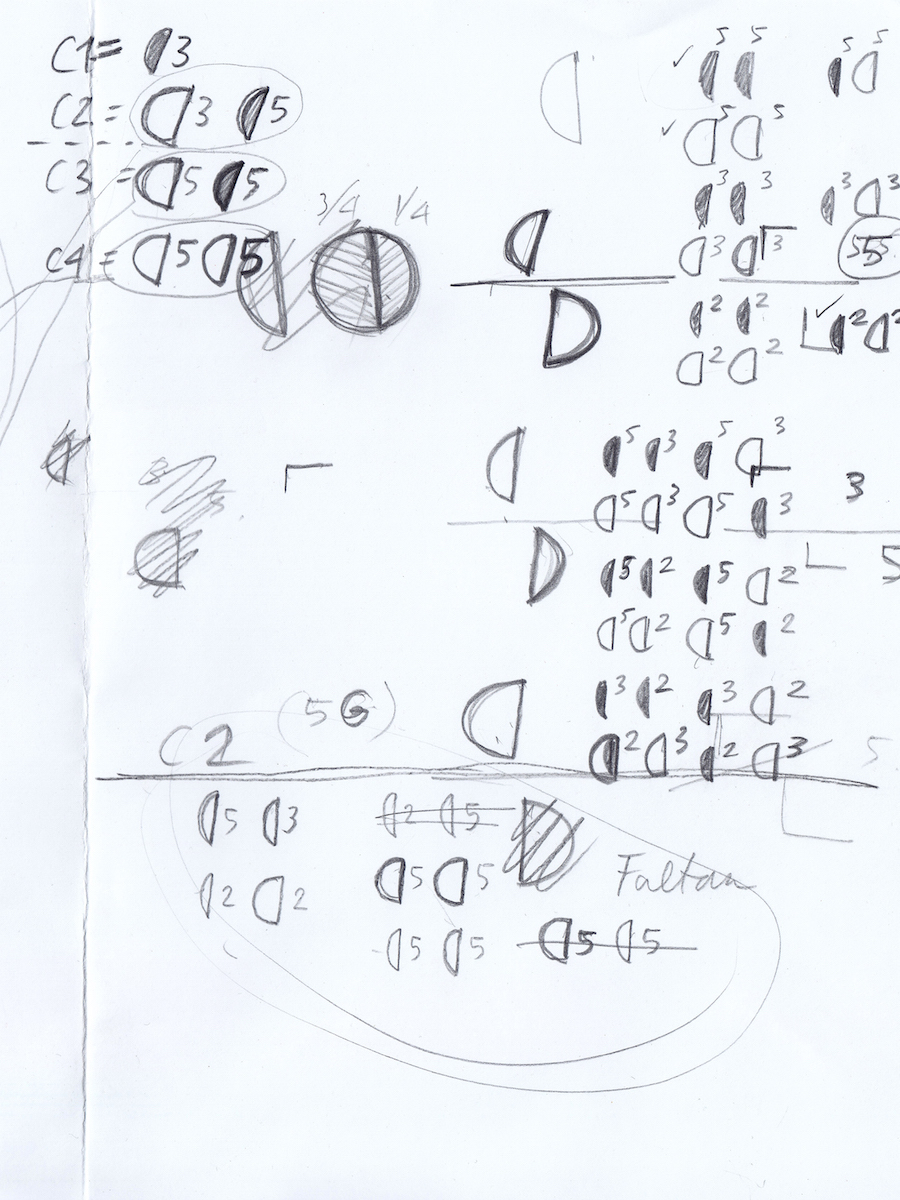 C1= 3
C2 = 3 5
C3 = 5 5
C4 = 5 5
3/4 1/4
5 5 5 5
5 5
3 3 3 3
3 3 55
2 2 2 2
2 2
5 3 5 3
5 3 5 3 3
5 2 5 2 5
5 2 5 2
3 2 3 2
2 3 2 3 5
C2 (5G)
5 3 2 5
2 2 5 5 Faltan
5 5 5 5